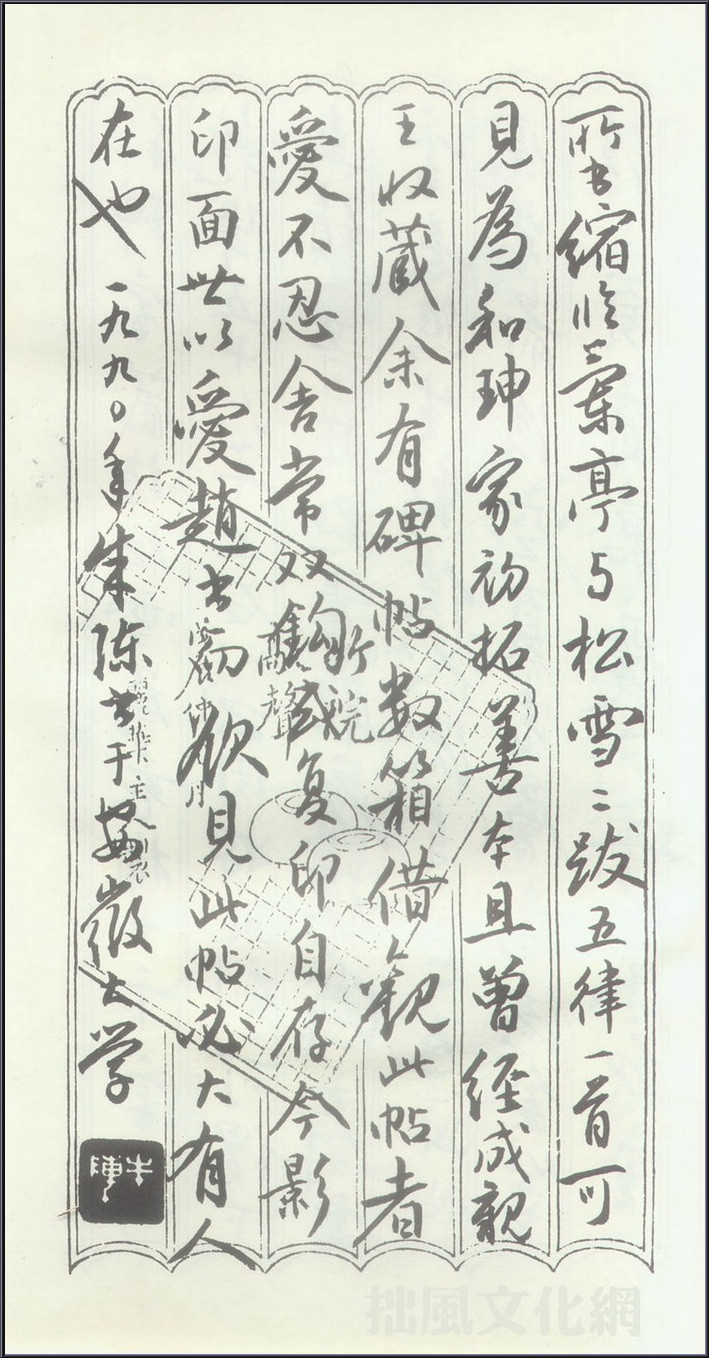 所书缩临蘭亭与松雪二跋五律一首可
見為和珅家初拓善本且曾经成親
王收藏余有碑帖数箱借觀此帖者
愛不忍舍常双鈎或复印自存今影
印面世以愛趙书欲見此帖必大有人
在也一九九〇年朱陈书于安徽大学
朱陳
拙風文化網